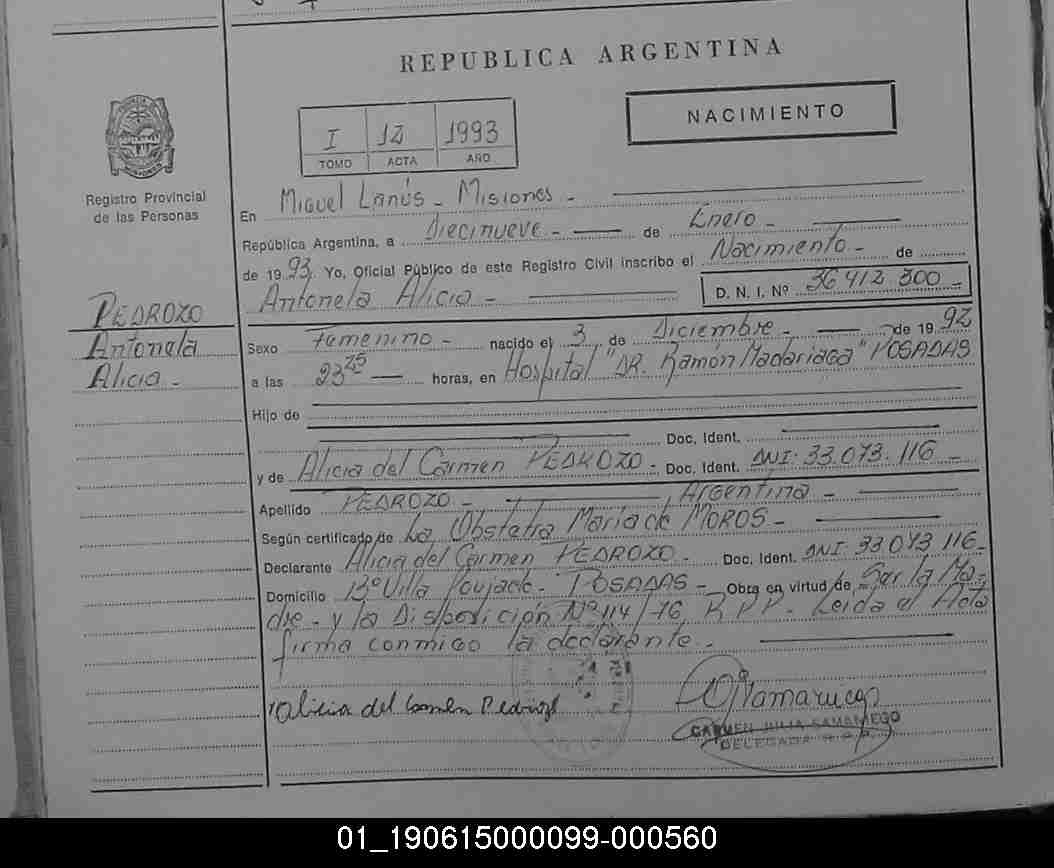 REPUBLICA ARGENTINA
NACIMIENTO
I 12 1993
TOMO ACTA AÑO
Registro Provincial
de las Personas
PEDROZO
Antonela
Alicia -
En Miguel Lanús - Misiones -
República Argentina, a Diecinueve - de Enero -
de 1993. Yo, Oficial Público de este Registro Civil inscribo el Nacimiento - de
Antonela Alicia - D. N. I. Nº 36 412 300 -
Sexo Femenino - nacido el 3 de Diciembre - de 1992
a las 23 25 horas, en Hospital "DR. Ramón Madariaga" POSADAS
Hijo de
Doc. Ident.
y de Alicia del Carmen PEDROZO - Doc. Ident. DNI: 33.073.116 -
Apellido PEDROZO - , Argentina -
Según certificado de La Obstetra Maria de MOROS -
Declarante Alicia del Carmen PEDROZO - Doc. Ident. DNI: 33 073 116 -
Domicilio Bº Villa Poujade - POSADAS - Obra en virtud de Ser la Ma-
dre - y la Disposición Nº 114/76 R.P.P. - Leida el Acta
firma conmigo la declarante -
Alicia del Carmen Pedrozo
CARMEN JULIA SAMANIEGO
DELEGADA R.P.P.
01_190615000099-000560